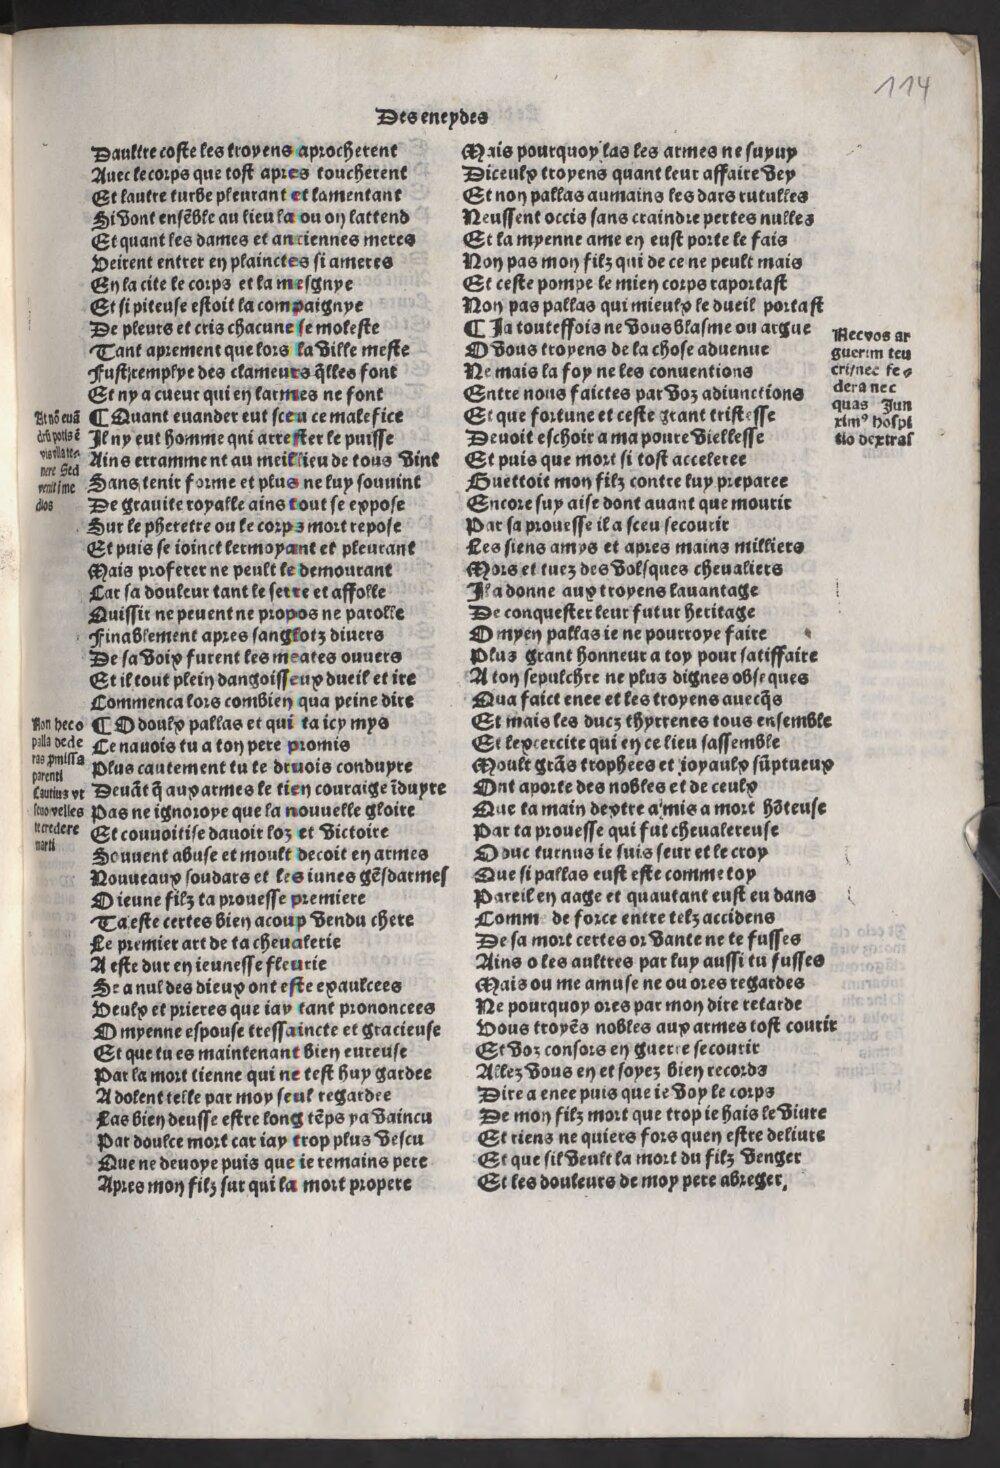 114
Des eneydes
Daultre coste les troyens aprocherent
Avec le corps que tost apres toucherent
Et lautre turbe pleurant et lamentant
Si vont ensẽble au lieu la ou on lattend
Et quant les dames et anciennes meres
Veirent entrer en plainctes si ameres
En la cite le corps et la mesgnye
Et si piteuse estoit la compaignye
De pleurs et cris chacune se moleste
Tant aprement que lors la ville meste
Fust remplye des clameurs q̃lles font
Et ny a cueur qui en larmes ne font
At nõ euã
drũ potis ẽ
vis vlla te-
nere Sed
venit ĩ me
dios
¶ Quant euander eut sceu ce malefice
Il ny eut homme qui arrester le puisse
Ains erramment au meillieu de tous vint
Sans tenir forme et plus ne luy souuint
De grauite royalle ains tout se expose
Sur le pheretre ou le corps mort repose
Et puis se ioinct lermoyant et pleurant
Mais proferer ne peult le demourant
Car sa douleur tant le serre et affolle
Quissir ne peuent ne propos ne parolle
Finablement apres sanglotz diuers
De sa voix furent les meates ouuers
Et il tout plein dangoisseux dueil et ire
Commenca lors combien qua peine dire
Non hec o
palla dede
ras ꝓmissa
parenti
Cautius vt
seuo velles
te credere
marti
¶ O doulx pallas et qui ta icy mys
Ce nauois tu a ton pere promis
Plus cautement tu te deuois conduyre
Deuãt q̃ aux armes le tien couraige ĩduyre
Pas ne ignoroye que la nouuelle gloire
Et couuoitise dauoir loz et victoire
Souuent abuse et moult decoit en armes
Nouueaux soudars et les iunes gẽsdarmes
O ieune filz ta prouesse premiere
Ta este certes bien acoup vendu chere
Le premier art de ta cheualerie
A este dur en ieunesse fleurie
Se a nul des dieux ont este exaulcees
Veulx et prieres que iay tant prononcees
O myenne espouse tressaincte et gracieuse
Et que tu es maintenant bien eureuse
Par la mort tienne qui ne test huy gardee
A dolent telle par moy seul regardee
Las bien deusse estre long tẽps ya vaincu
Par doulce mort car iay trop plus vescu
Que ne deuoye puis que ie remains pere
Apres mon filz sur qui la mort propere
Mais pourquoy las les armes ne suyuy
Diceulx troyens quant leur affaire vey
Et non pallas aumains les dars rutulles
Neussent occis sans craindre pertes nulles
Et la myenne ame en eust porte le fais
Non pas mon filz qui de ce ne peult mais
Et ceste pompe le mien corps raportast
Non pas pallas qui mieulx le dueil portast
Nec vos ar
guerim teu
cri/nec fe-
dera nec
quas Jun
xim⁹ hospi
tio dextras
¶ Ja touteffois ne vous blasme ou argue
O vous troyens de la chose aduenue
Ne mais la foy ne les conuentions
Entre nous faictes par voz adiunctions
Et que fortune et ceste grant tristesse
Deuoit eschoir a ma poure viellesse
Et puis que mort si tost acceleree
Guettoit mon filz contre luy preparee
Encore suy aise dont auant que mourir
Par sa prouesse il a sceu secourir
Les siens amys et apres mains milliers
Mors et tuez des volsques cheualiers
Il a donne aux troyens lauantage
De conquester leur futur heritage
O myen pallas ie ne pourroye faire
Plus grant honneur a toy pour satiffaire
A ton sepulchre ne plus dignes obseques
Qua faict enee et les troyens auecq̃s
Et mais les ducz thyrrenes tous ensemble
Et lexcercite qui en ce lieu sassemble
Moult grãs trophees et ioyaulx sũptueux
Ont aporte des nobles et de ceulx
Que ta main dextre a mis a mort hõteuse
Par ta prouesse qui fut cheualereuse
O duc turnus ie suis seur et le croy
Que si pallas eust este comme toy
Pareil en aage et quautant eust eu dans
Comme de force entre telz accidens
De sa mort certes or vante ne te fusses
Ains o les aultres par luy aussi tu fusses
Mais ou me amuse ne ou ores regardes
Ne pourquoy ores par mon dire retarde
Vous troyẽs nobles aux armes tost courir
Et voz consors en guerre secourir
Allez vous en et soyez bien records
Dire a enee puis que ie voy le corps
De mon filz mort que trop ie hais le viure
Et riens ne quiers fors quen estre deliure
Et que sil veult la mort du filz venger
Et les douleurs de moy pere abreger,